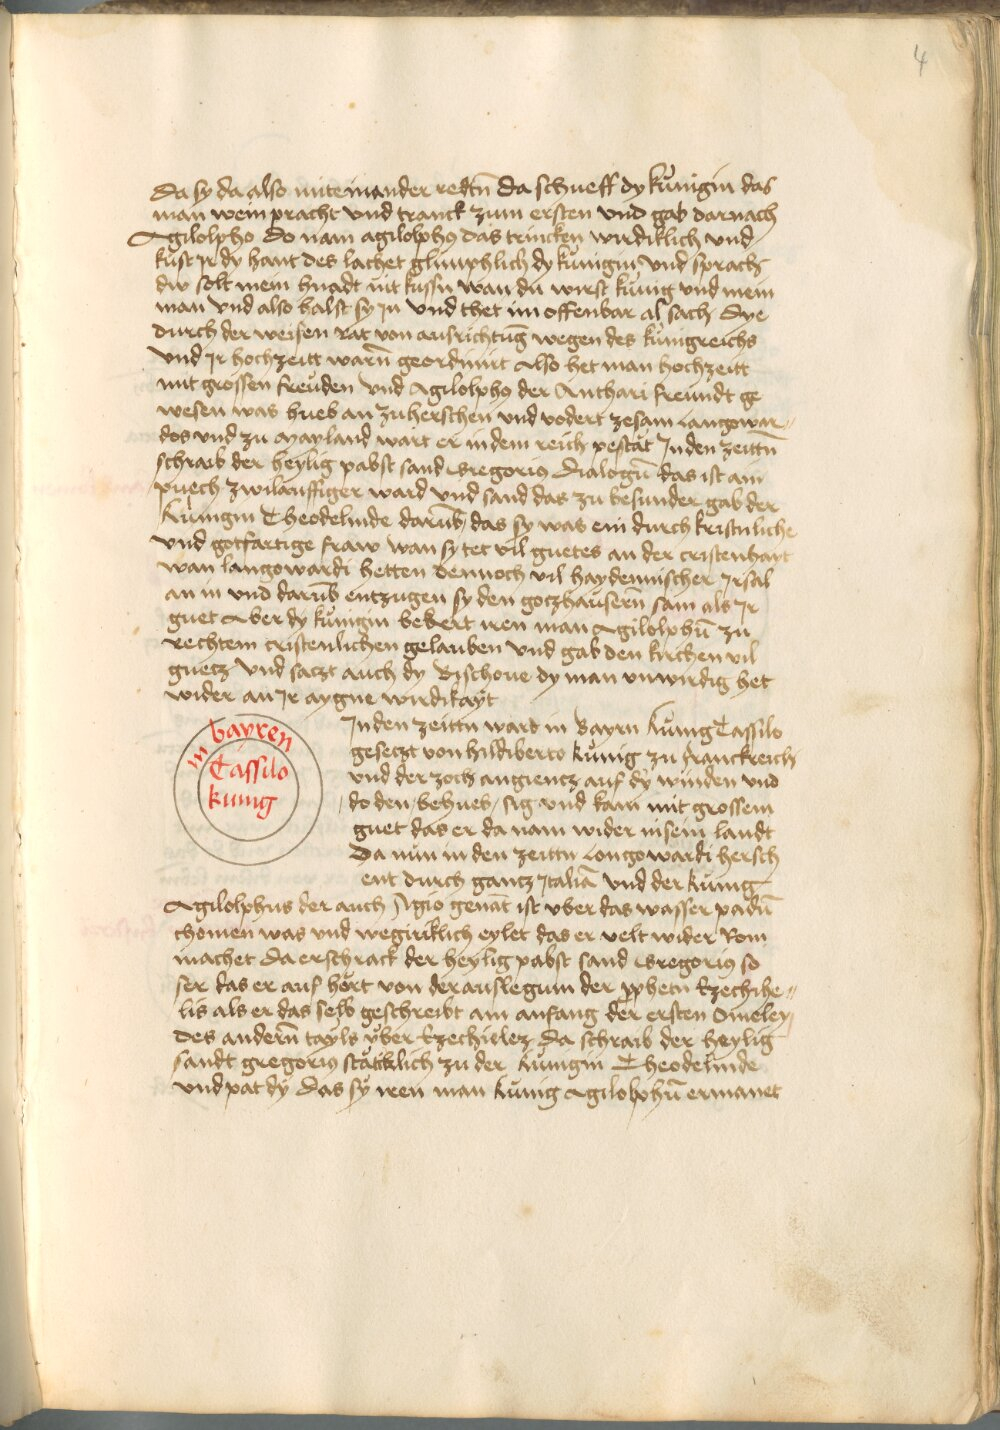 4
Da sy da also miteinander redtn̄ Da schueff dy kůnigin das
man wein pracht vnd tranck zum ersten vnd gab darnach
Agilolpho Do nam agilolphꝰ das trincken wirdiklich vnd
kust Ir dy hant des lachet glimphlich dy kůnigin vnd sprach
dw solt mein hnadt nit kussn wan dü wirst kůnig vnd mein
man vnd also halst sy In vnd thet im offenbar al sach Dye
durch der weisen Rat von ausrichtūg wegen des kůnigreichs
vnd Ir hochzeitt warn̄ geordinirt Also het man hochzeitt
mit grossen freuden vnd Agilolphꝰ der Anthari freundt ge
wesen was hueb an zuherschen vnd vodert zesam Langowar⸗
dos vnd zu Mayland wart er in dem reich pestät In den zeittn̄
schraib der heylig pabst sand Gregoriꝰ Dialogū das ist ain
puech zwilauffiger ward vnd sand das zu besunder gab der
kůnigin Theodelinde darūb das sy was ein durch kristnliche
vnd gotfartige fraw wan sy tet vil guetes an der cristenhayt
wan langowardi hetten dennoch vil haydennischer Irsal
an in vnd darūb entzugen sy den gotzhausern̄ sam als Ir
guet Aber dy kůnigin bekert iren man Agilolphū zu
Rechtem cristenlichen gelauben vnd gab den kirchen vil
guetz vnd satzt auch dy Bischoue dy man vnwirdig het
wider an Ir aygne wirdikaÿt
in bayren
Tassilo
kunig
In den zeittn ward in Bayrn kůnig Tassilo
gesetzt von hildiberto kůnig zu franckreich
vnd der zoch angientz auf dÿ winden vnd
do den behueb sig vnd kam mit grossem
guet das er da nam wider in sein landt
Da nün in den zeittn Longowardi hersch
ent durch gantz Italiā vnd der kůnig
Agilolphus der auch Agio genāt ist vber das wasser padū
chomen was vnd wegiriklich eylet das er velt wider Rom
machet Da erschrack der heylig pabst sand Gregoriꝰ so
ser das er auf hört von der auslegum der ꝓphetn Ezechihe⸗
lis als er das selb geschreibt am anfang der ersten Omeley
des andern̄ tayls vber Ezechielez Da schraib der heylig
sandt gregoriꝰ stäcklich zu der kůnigin Theodelinde
vnd pat dÿ Das sÿ iren man kůnig Agilolphū ermanet